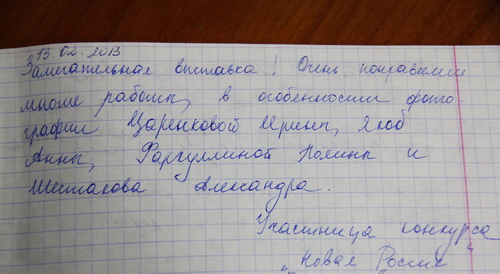 13.02.2013
Замечательная выставка! Очень понравились
многие работы, в особенности фото-
графии Царенковой Ирины, Якоб
Анны, Фаргуллиной Полины и
Шестакова Александра.
Участница конкурса
"Новая Россия"